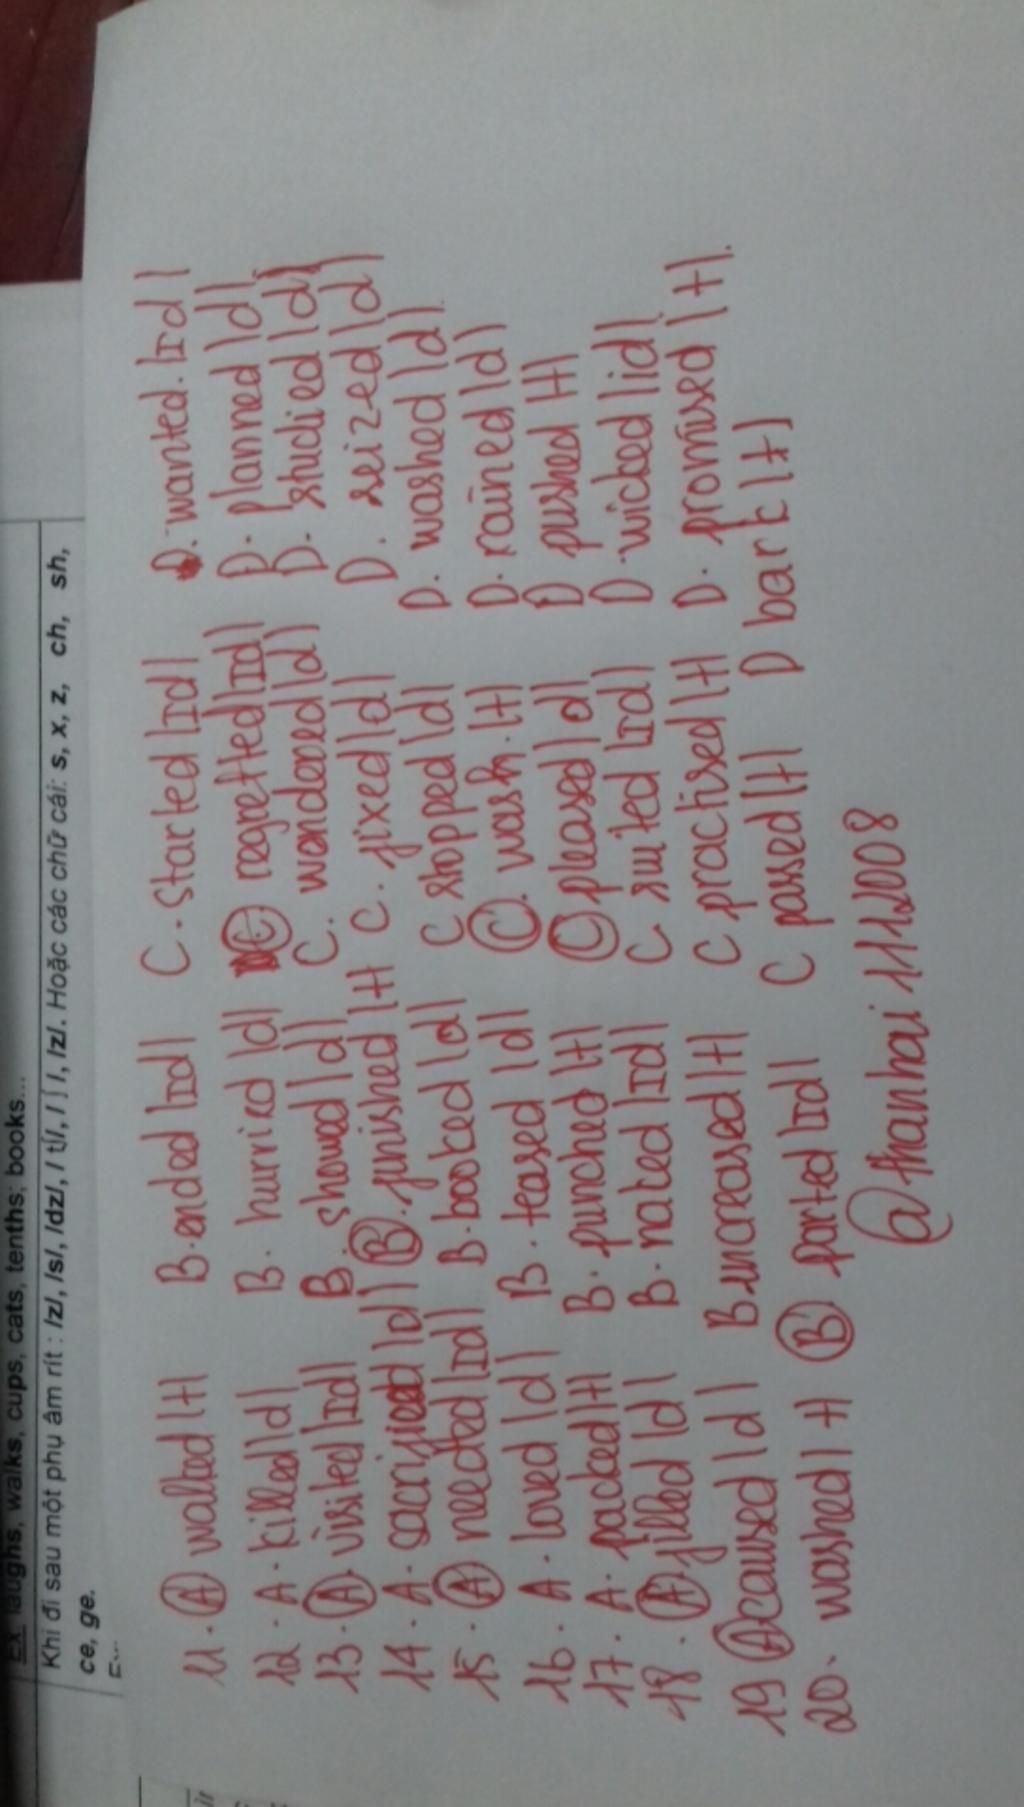 Ex: laughs, walks, cups, cats, tenths; books...
Khi đi sau một phụ âm rít : /z/, /s/, /dz/, / tʃ/, / ʃ /, /z/. Hoặc các chữ cái: s, x, z, ch, sh,
ce, ge.
11. A walked /t/ B. ended /ɪd/ C. started /ɪd/ D. wanted. /ɪd/
12. A. killed /d/ B. hurried /d/ C. regretted /ɪd/ D. planned /d/
13. A. visited /ɪd/ B. showed /d/ C. wondered /d/ D. studied /d/
14. A. sacrificed /d/ B. finished /t/ C. fixed /d/ D. seized /d/
15. A needed /ɪd/ B. booked /d/ C stopped /d/ D. washed /d/
16. A. loved /d/ B. teased /d/ C. wash. /t/ D. rained /d/
17. A. packed /t/ B. punched /t/ C pleased /d/ D pushed /t/
18. A filled /d/ B. nated /ɪd/ C suited /ɪd/ D. wicked /id/
19 A caused /d/ B increased /t/ C practised /t/ D. promised /t/.
20. washed / t/ B parted /ɪd/ C passed /t/ D bark /t/
@thanhai 1112008